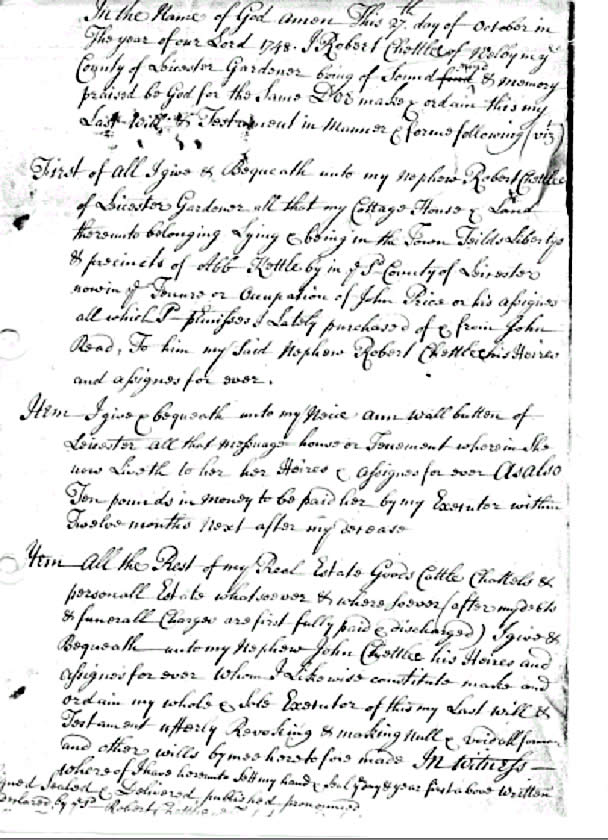 In the Name of God Amen This 27th day of October in
The year of our Lord 1748. I Robert Chettle of Welby in ye
County of Leicester Gardener being of Sound mind & memory
praised be God for the Same Do make & ordain this my
Last Will & Testament in Manner & forme following (viz)
First of all I give & Bequeath unto my Nephew Robert Chettle
of Leicester Gardener all that my Cottage House & Land
thereunto belonging Lying & being in the Town Feilds Libertys
& precincts of Abb Kettleby in ye Sd County of Leicester
now in ye Tenure or Occupation of John Price or his assignes
all which Sd premisses I Lately purchased of & from John
Read, To him my Said Nephew Robert Chettle & his Heires
and assignes for ever.
Item I give & bequeath unto my Neice Ann Wallbutten of
Leicester all that Messuage house or Tenement wherein She
now Liveth to her her Heires & assignes for ever As also
Ten pounds in Money to be paid her by my Executer within
Twelve months Next after my decease
Item All the Rest of my Real Estate Goods Cattle Chattels &
personall Estate whatsoever & wheresoever (after my debts
& funerall Charges are first fully paid & discharged) I give &
Bequeath unto my Nephew John Chettle his Heires and
assignes for ever whom I Likewise constitute make and
ordain my whole & Sole Executor of this my Last will &
Testament utterly Revoking & making Null & void all former
and other wills by mee heretofore made In Witness
whereof I have hereunto Set my hand & Seal ye day & year first above written
Signed Sealed & Delivered published pronounced
declared by ye Sd Robert Chettle